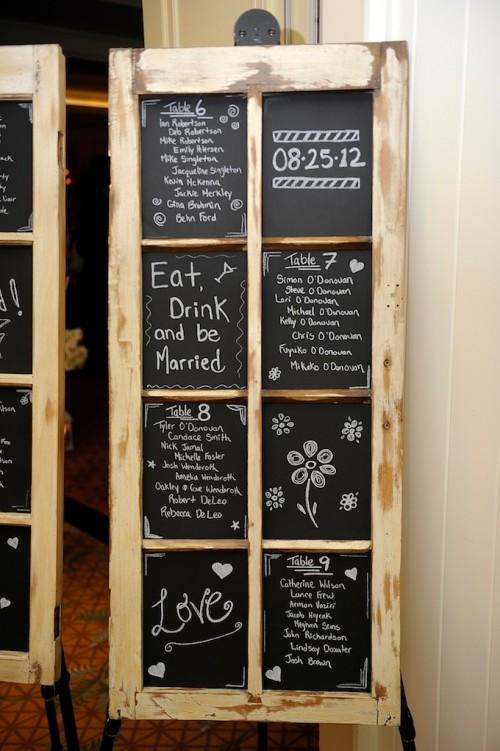 Table 6
Ian Robertson
Deb Robertson
Mike Robertson
Emily Petersen
Mike Singleton
Jacqueline Singleton
Kevin McKenna
Jackie Merkley
Gina Bruhmin
Behn Ford
08·25·12
Eat,
Drink
and be
Married
Table 7
Simon O'Donovan
Steve O'Donovan
Lori O'Donovan
Michael O'Donovan
Kelly O'Donovan
Chris O'Donovan
Fuyuko O'Donovan
Mikako O'Donovan
Table 8
Tyler O'Donovan
Candace Smith
Nick Jamal
Michelle Foster
Josh Wenderoth
Amelia Wenderoth
Oakley & Wenderoth
Robert DeLeo
Rebecca DeLeo
Love
Table 9
Catherine Wilson
Lance Frew
Arman Vaziri
Jacob
Meghan Sims
John Richardson
Lindsay
Josh Brown